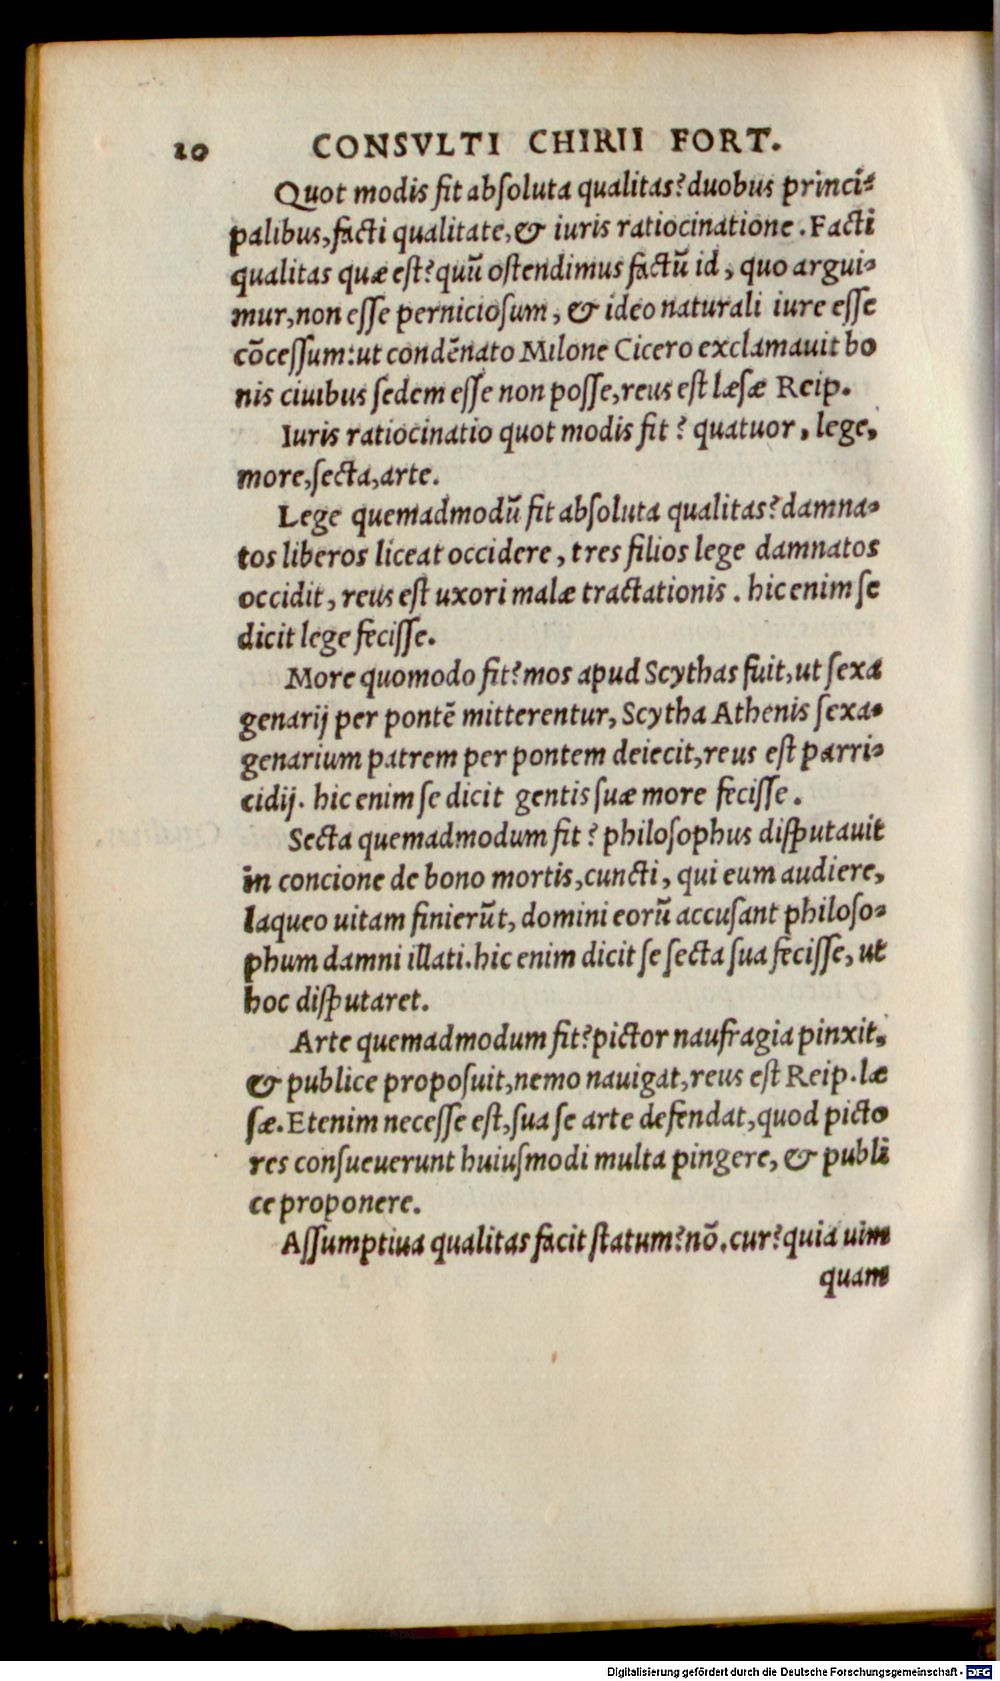 20 CONSVLTI CHIRII FORT.
Quot modis fit abſoluta qualitas? duobus princi-
palibus, facti qualitate, & iuris ratiocinatione. Facti
qualitas quæ eſt? quū oſtendimus factū id, quo argui-
mur, non eſſe pernicioſum, & ideo naturali iure eſſe
cōceſſum: ut condēnato Milone Cicero exclamauit bo
nis ciuibus ſedem eſſe non poſſe, reus eſt læſæ Reip.
Iuris ratiocinatio quot modis fit? quatuor, lege,
more, ſecta, arte.
Lege quemadmodū fit abſoluta qualitas? damna-
tos liberos liceat occidere, tres filios lege damnatos
occidit, reus eſt uxori malæ tractationis. hic enim ſe
dicit lege feciſſe.
More quomodo fit? mos apud Scythas fuit, ut ſexa
genarij per pontē mitterentur, Scytha Athenis ſexa-
genarium patrem per pontem deiecit, reus eſt parri-
cidij. hic enim ſe dicit gentis ſuæ more feciſſe.
Secta quemadmodum fit? philoſophus diſputauit
in concione de bono mortis, cuncti, qui eum audiere,
laqueo uitam finierūt, domini eorū accuſant philoſo-
phum damni illati. hic enim dicit ſe ſecta ſua feciſſe, ut
hoc diſputaret.
Arte quemadmodum fit? pictor naufragia pinxit,
& publice propoſuit, nemo nauigat, reus eſt Reip. læ
ſæ. Etenim neceſſe eſt, ſua ſe arte defendat, quod picto
res conſueuerunt huiuſmodi multa pingere, & publi
ce proponere.
Aſſumptiua qualitas facit ſtatum? nō. cur? quia uim
quam
Digitalisierung gefördert durch die Deutsche Forschungsgemeinschaft - DFG